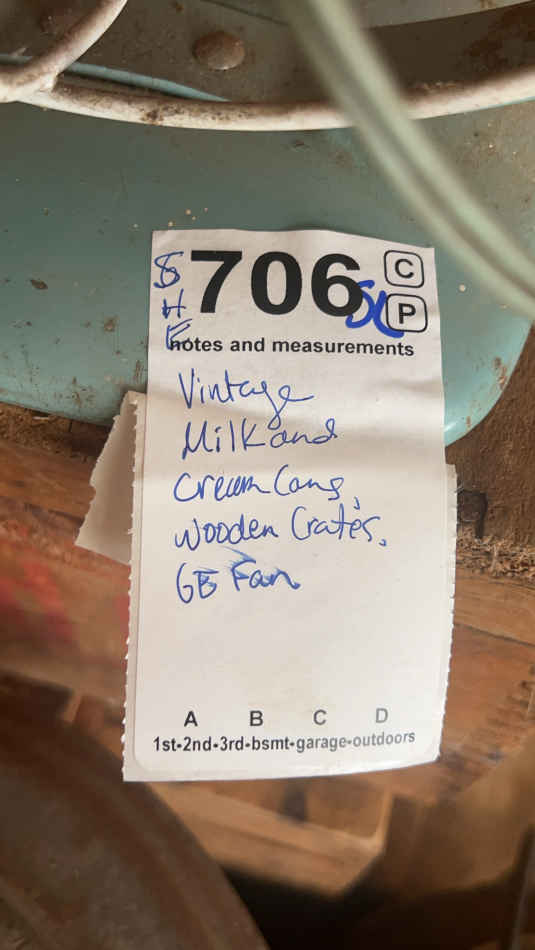 SHE 706 SL C
P
notes and measurements
Vintage
Milk and
Cream Cans,
Wooden Crates,
GE Fan
A B C D
1st-2nd-3rd-bsmt-garage-outdoors